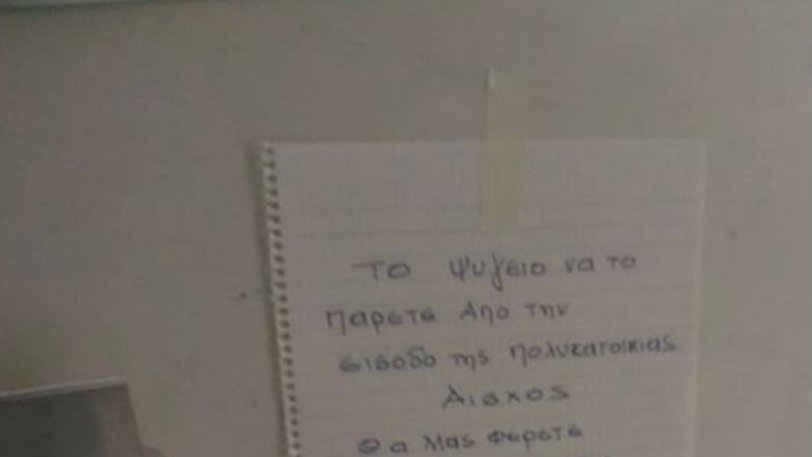 ΤΟ ψυγειο να το
παρετε Απο την
εισοδο της πολυκατοικιας
Αισχος
Θα μας φερετε